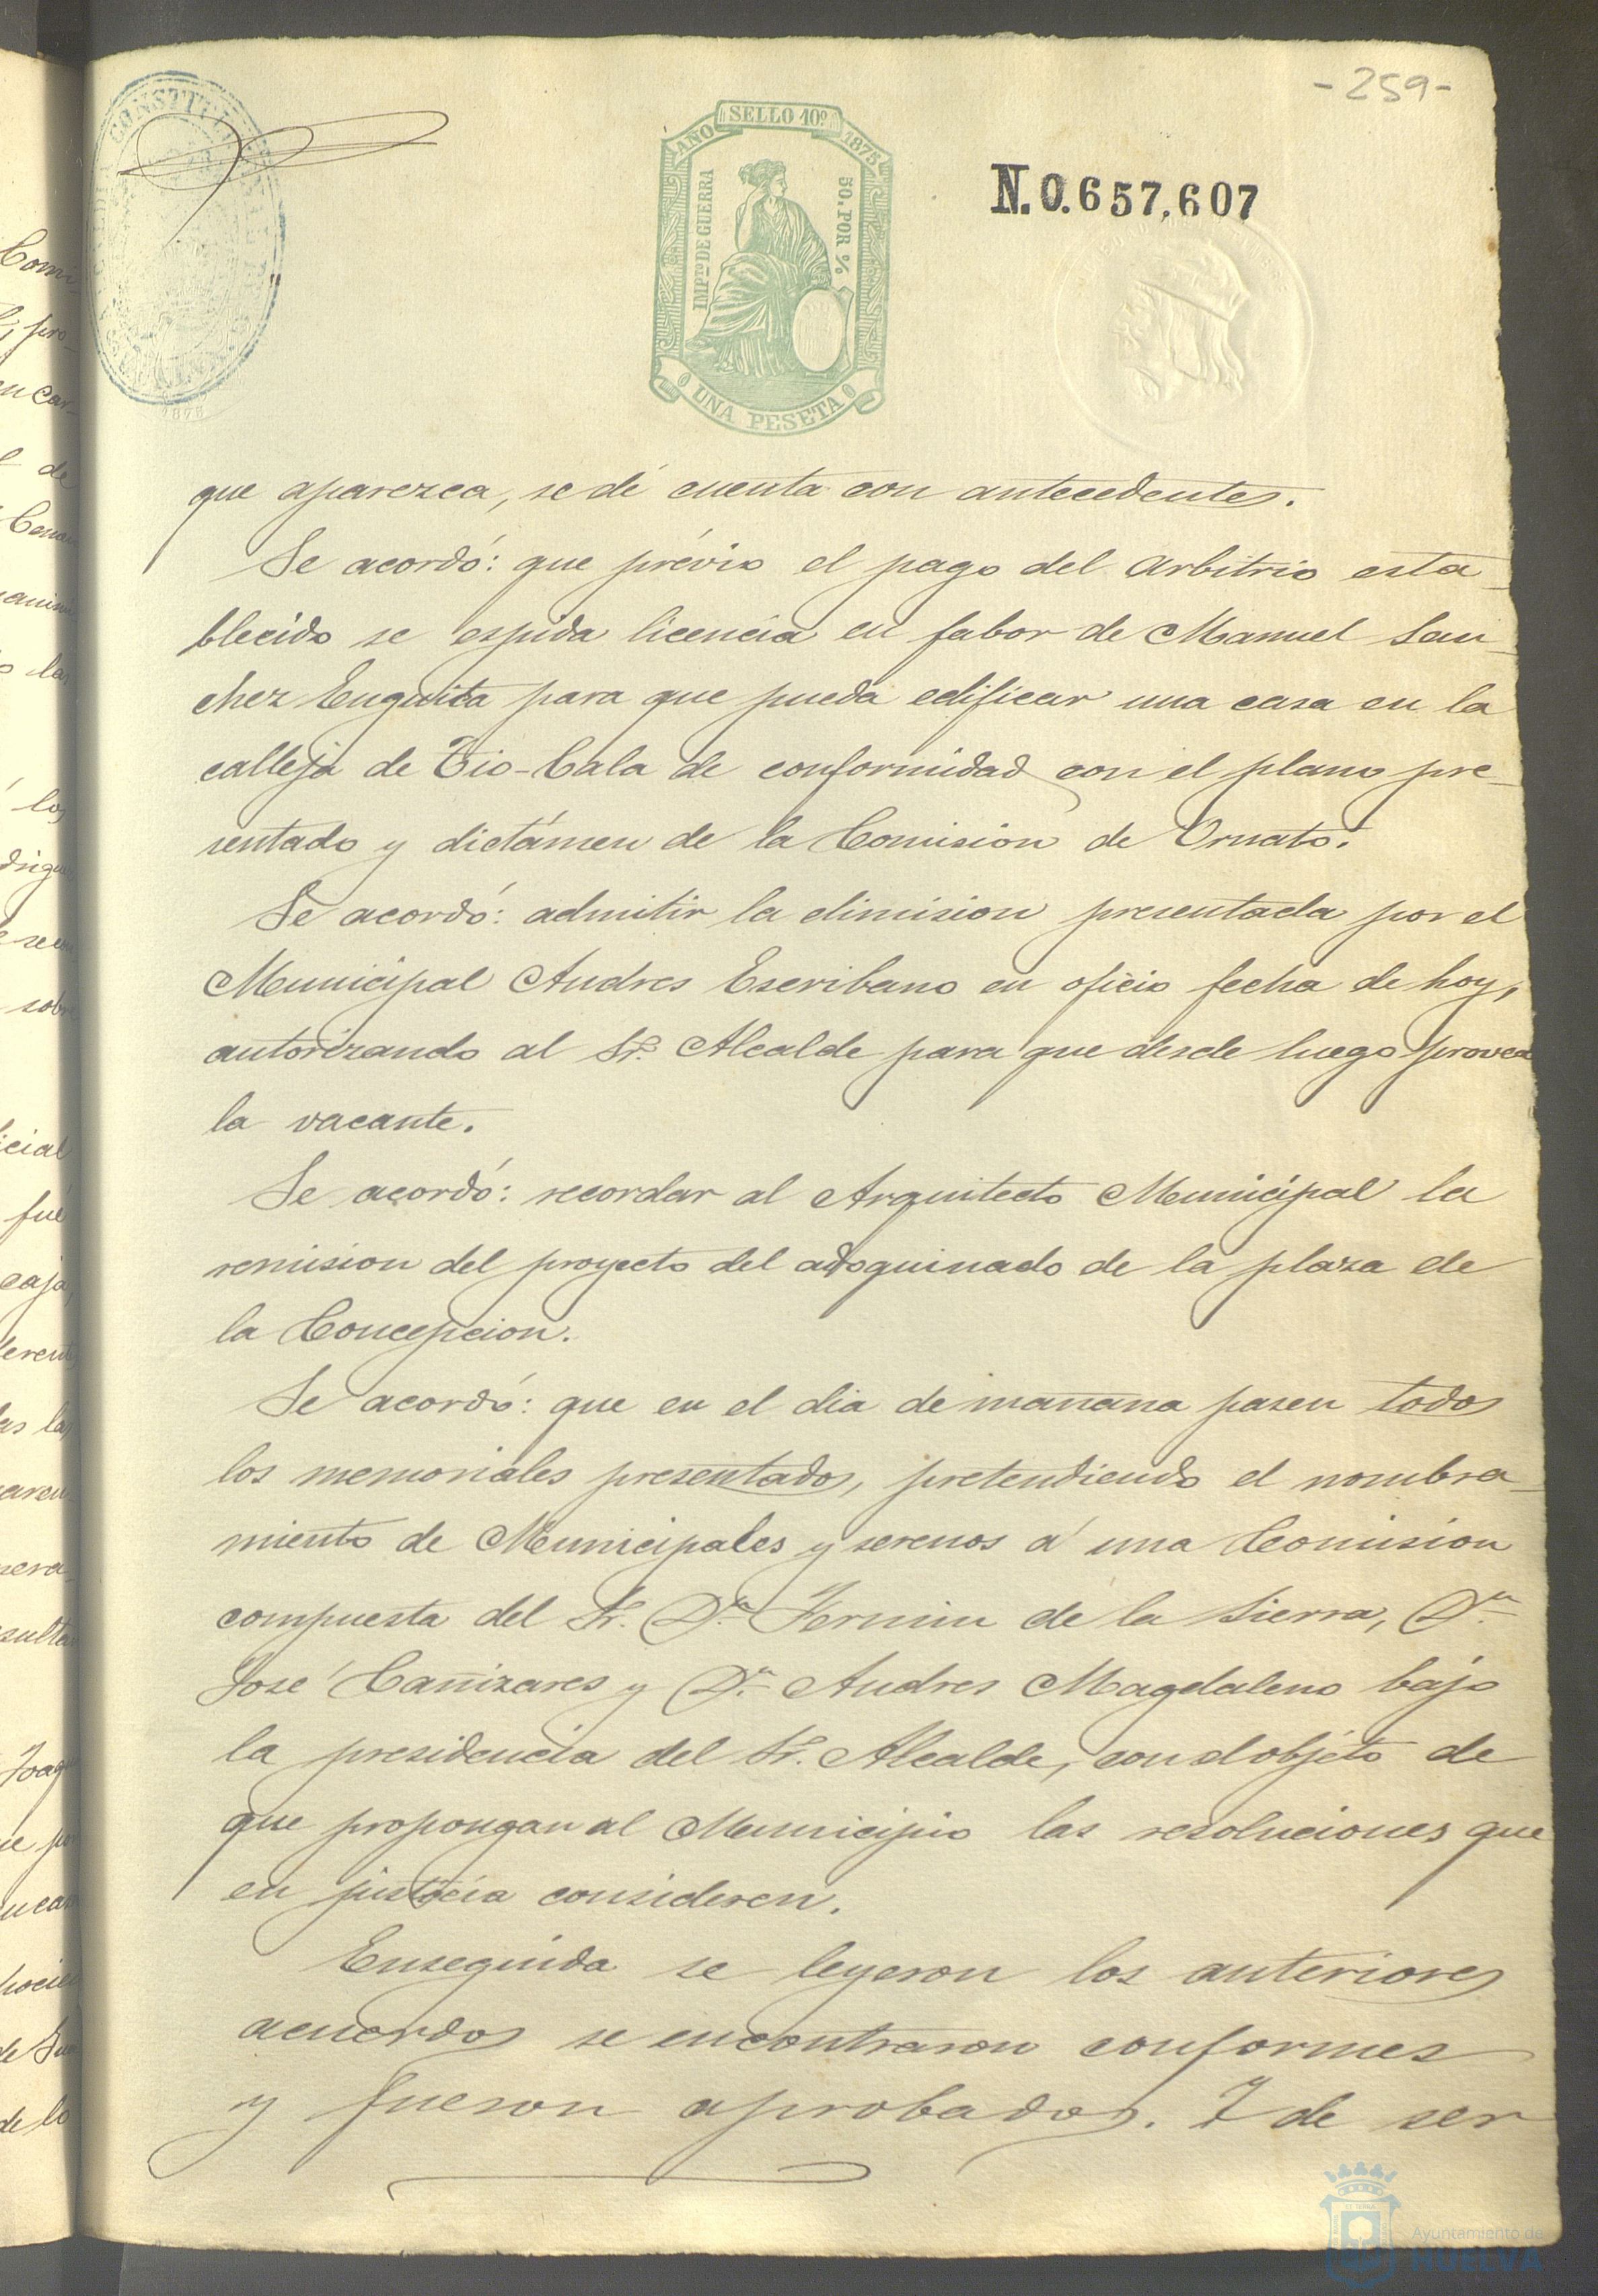 -259-
CONSTITU
1878
AÑO SELLO 10º 1875
IMPTO DE GUERRA
50. POR %
UNA PESETA
N.0.657,607
que aparezca, se dé cuenta con antecedentes.
Se acordó: que prévio el pago del arbitrio esta-
blecido se espida licencia en fabor de Manuel San-
chez Enguita para que pueda edificar una casa en la
calleja de Tio-Cala de conformidad con el plano pre-
sentado y dictámen de la Comision de Ornato.
Se acordó: admitir la dimision presentada por el
Municipal Andres Escribano en oficio fecha de hoy,
autorizando al Sr. Alcalde para que desde luego provea
la vacante.
Se acordó: recordar al Arquitecto Municipal la
remision del proyecto del adoquinado de la plaza de
la Concepcion.
Se acordó: que en el dia de mañana pasen todos
los memoriales presentados, pretendiendo el nombra-
miento de Municipales y serenos á una Comision
compuesta del Sr. Dn. Fermin de la Sierra, Dn.
José Cañizares y Dn. Andres Magdaleno bajo
la presidencia del Sr. Alcalde, con el objeto de
que propongan al Municipio las resoluciones que
en justicia consideren.
Enseguida se leyeron los anteriores
acuerdos se encontraron conformes
y fueron aprobados. Y de ser
Ayuntamiento de
HUELVA